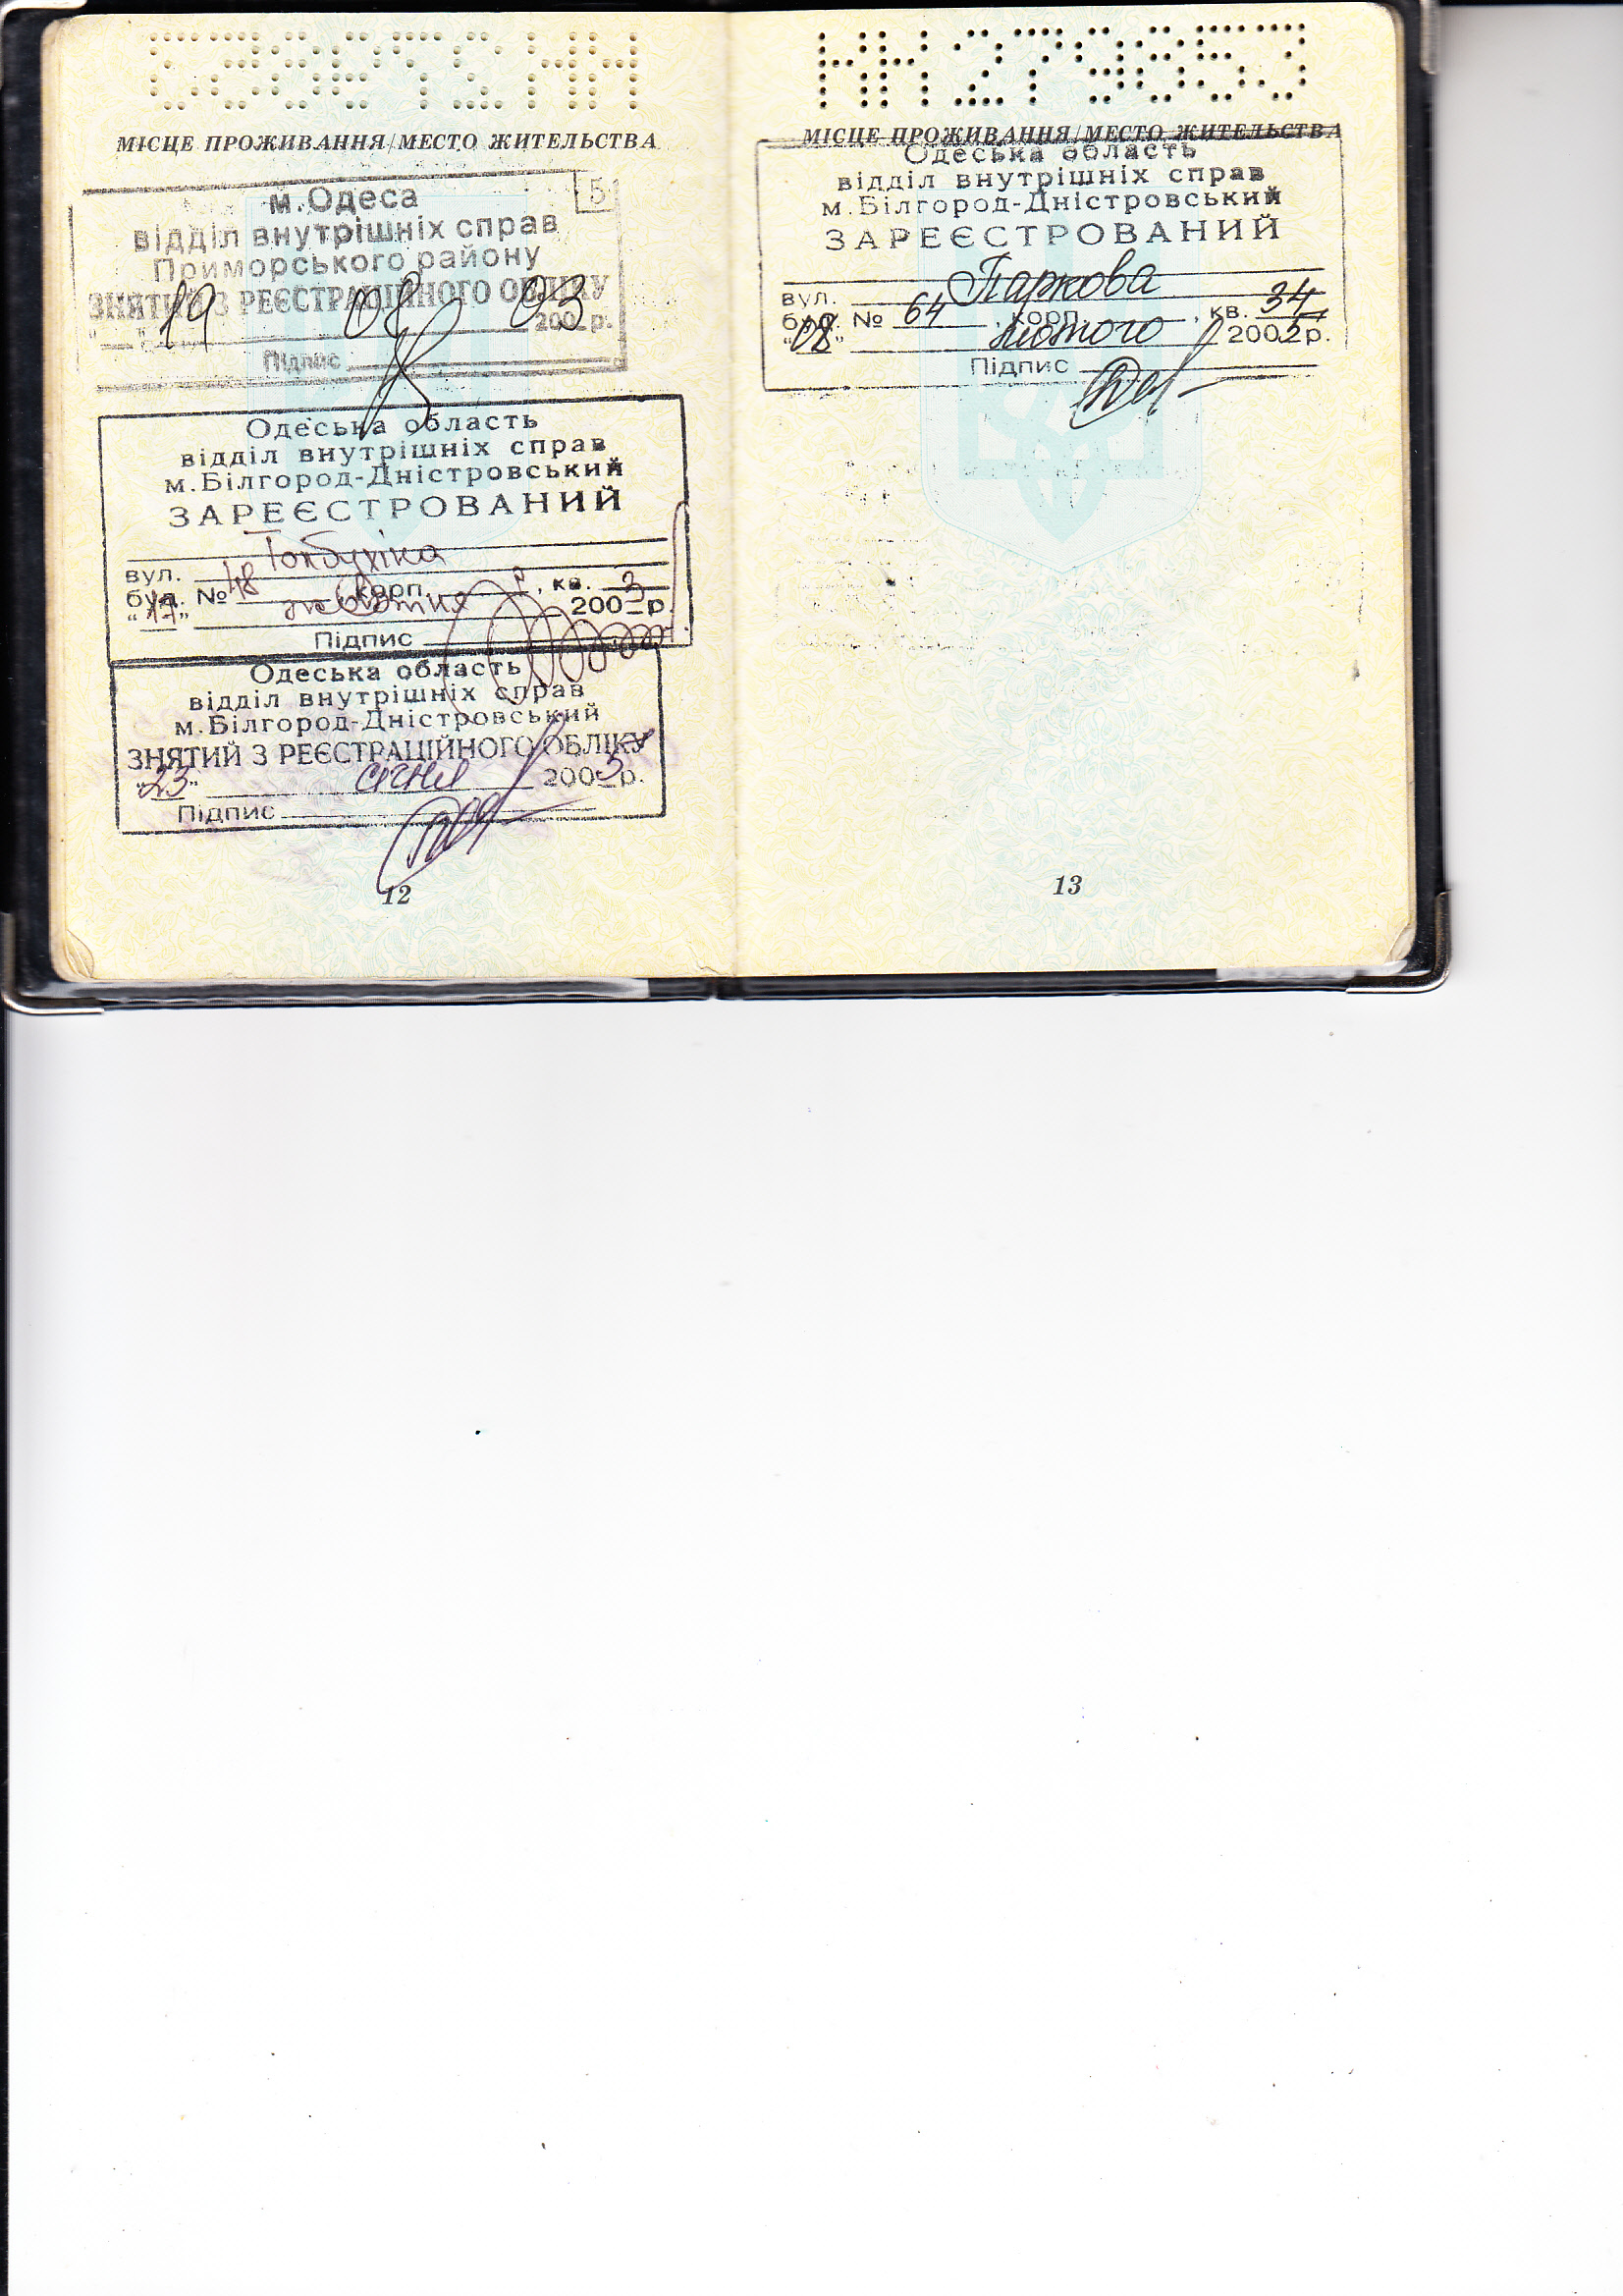 МІСЦЕ ПРОЖИВАННЯ/МЕСТО ЖИТЕЛЬСТВА
5
м.Одеса
відділ внутрішніх справ
Приморського району
ЗНЯТИЙ З РЕЄСТРАЦІЙНОГО ОБЛІКУ
19 08 03 200 р.
Підпис
Одеська область
відділ внутрішніх справ
м.Білгород-Дністровський
ЗАРЕЄСТРОВАНИЙ
вул. Толбухіна
буд. № 48 корп. , кв. 3
"17" жовтня 2003р.
Підпис
Одеська область
відділ внутрішніх справ
м.Білгород-Дністровський
ЗНЯТИЙ З РЕЄСТРАЦІЙНОГО ОБЛІКУ
"23" січня 200 р.
Підпис
12
НН 279853
МІСЦЕ ПРОЖИВАННЯ/МЕСТО ЖИТЕЛЬСТВА
Одеська область
відділ внутрішніх справ
м.Білгород-Дністровський
ЗАРЕЄСТРОВАНИЙ
вул. Паркова
буд. № 64, корп. , кв. 34
"08" лютого 2002р.
Підпис
13